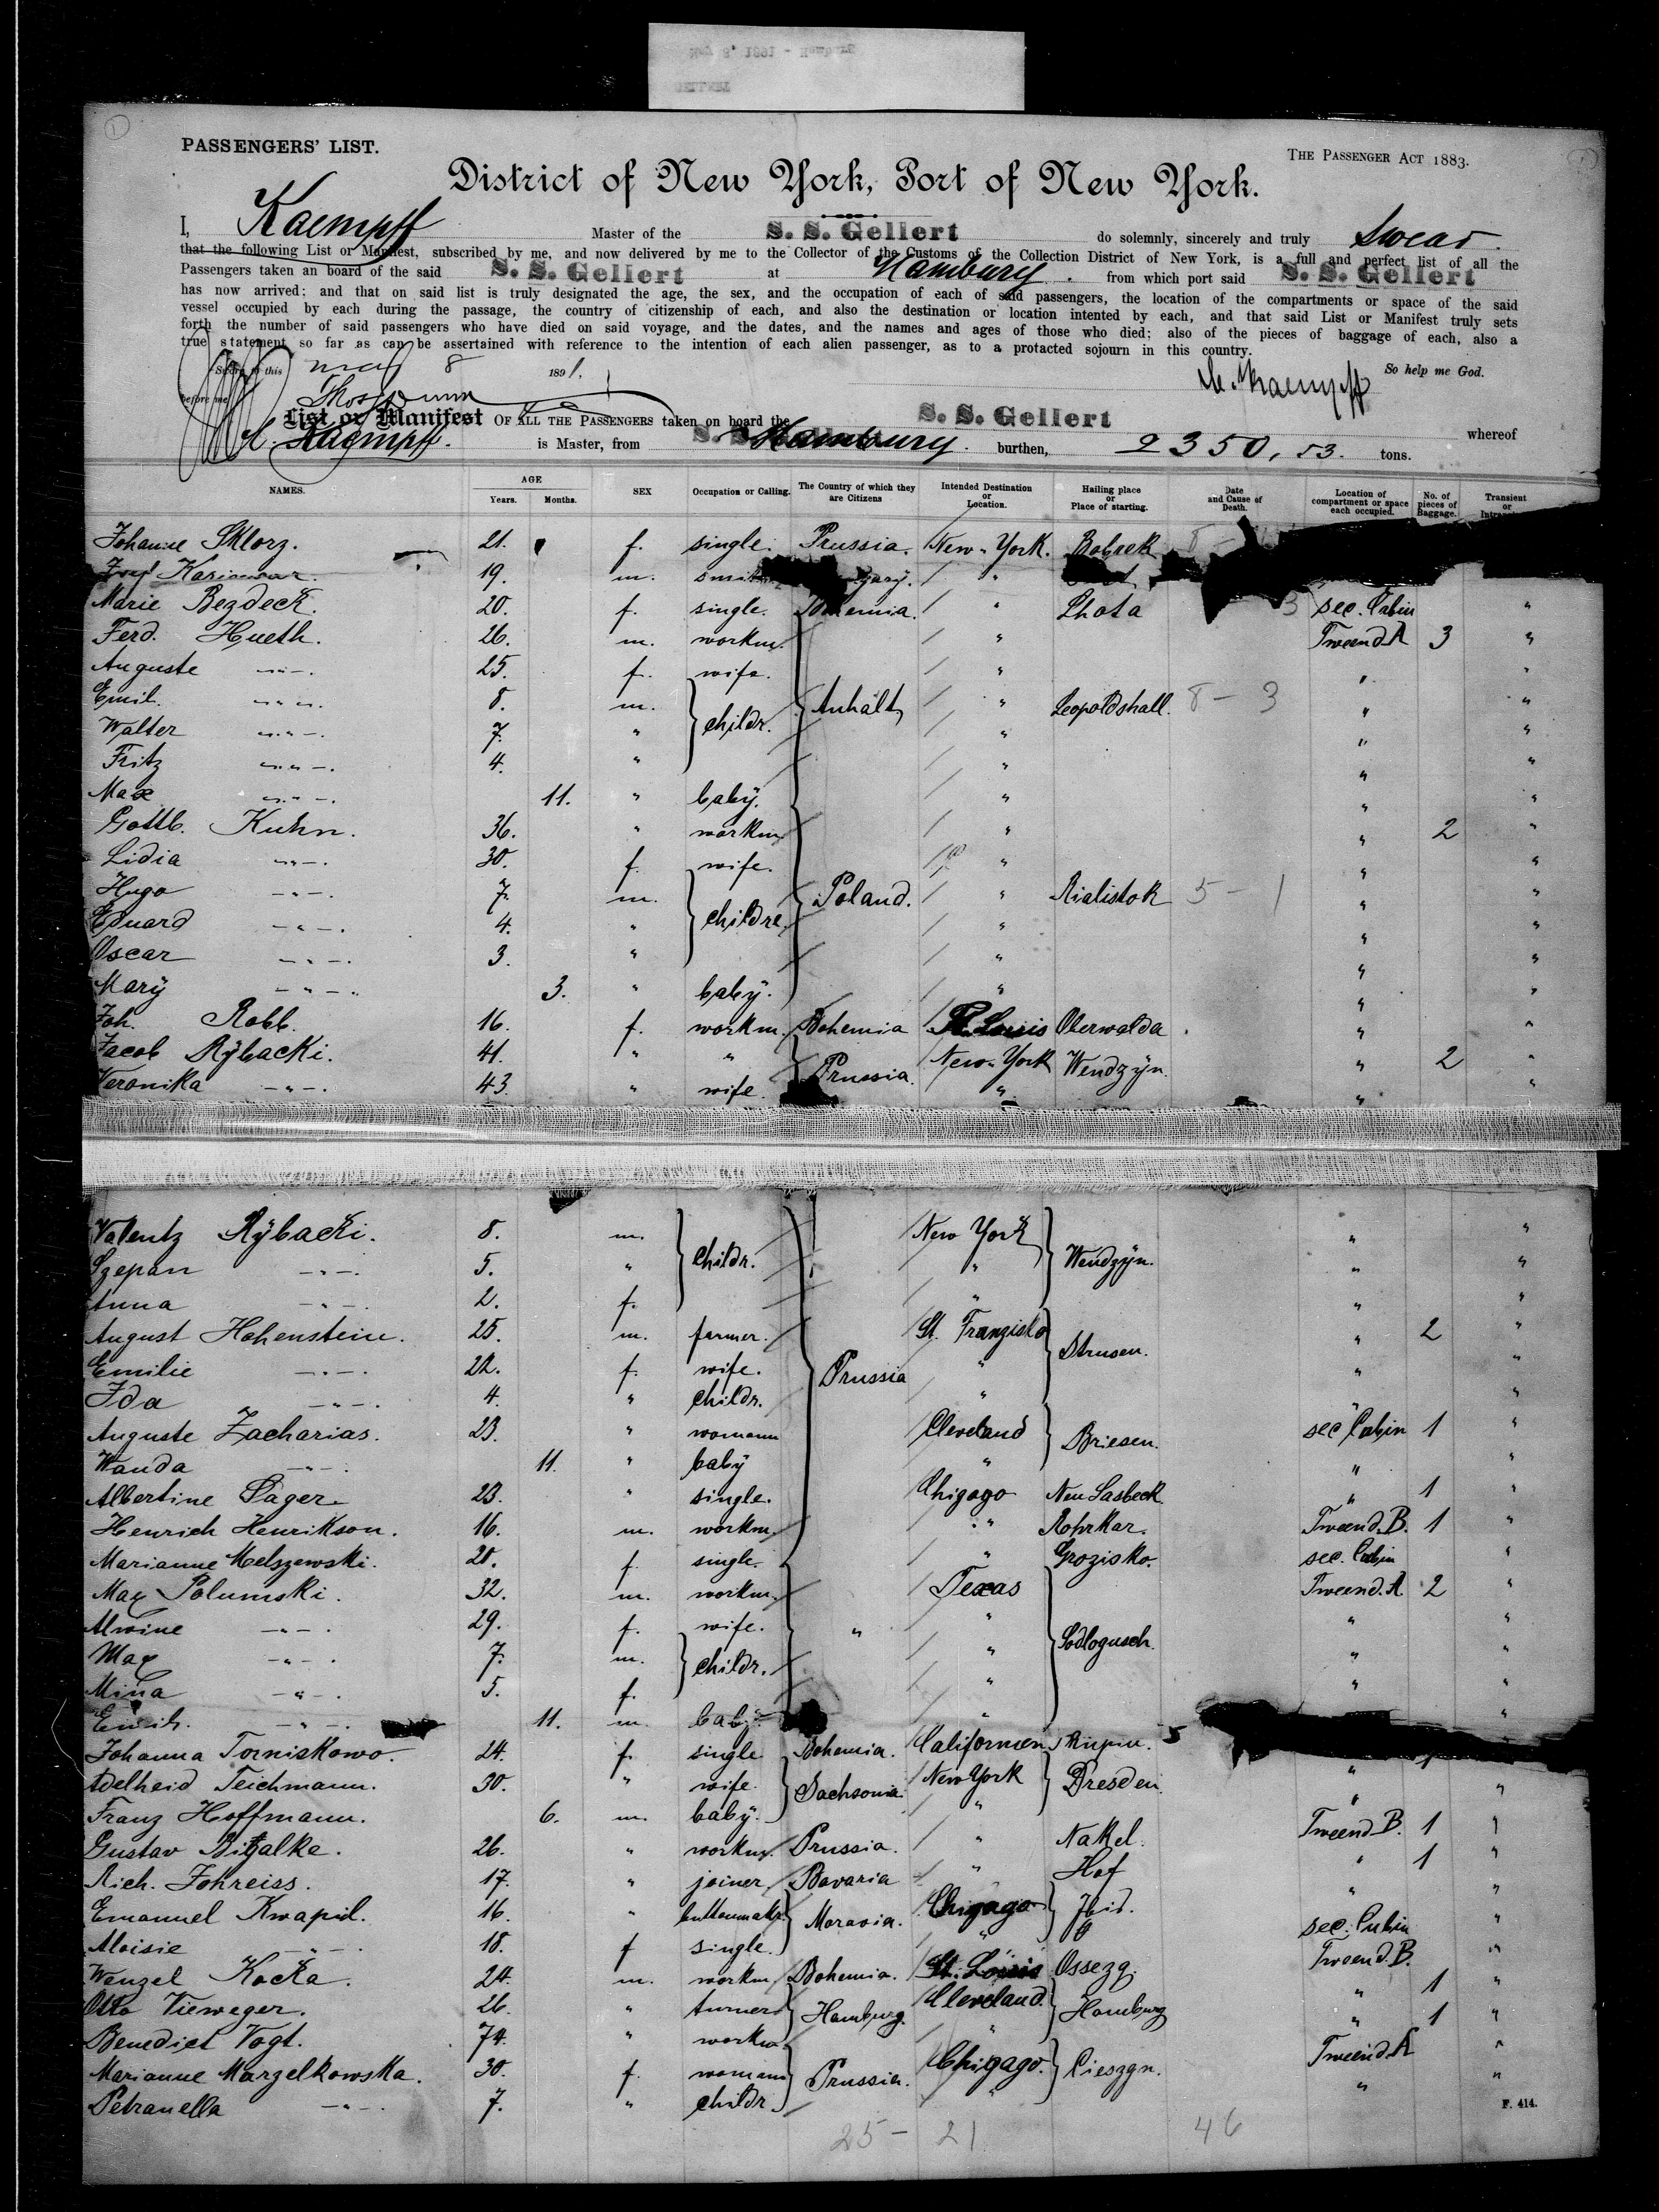 PASSENGERS' LIST.
THE PASSENGER ACT 1883.
District of New York, Port of New York.
I, Kaempff Master of the S. S. Gellert do solemnly, sincerely and truly swear
that the following List or Manifest, subscribed by me, and now delivered by me to the Collector of the Customs of the Collection District of New York, is a full and perfect list of all the
Passengers taken an board of the said S. S. Gellert at Hamburg. from which port said S. S. Gellert
has now arrived; and that on said list is truly designated the age, the sex, and the occupation of each of said passengers, the location of the compartments or space of the said
vessel occupied by each during the passage, the country of citizenship of each, and also the destination or location intented by each, and that said List or Manifest truly sets
forth the number of said passengers who have died on said voyage, and the dates, and the names and ages of those who died; also of the pieces of baggage of each, also a
true statement so far as can be assertained with reference to the intention of each alien passenger, as to a protacted sojourn in this country.
Sworn to this May 8 1891. So help me God.
before me
List or Manifest OF ALL THE PASSENGERS taken on board the S. S. Gellert whereof
Kaempff. is Master, from Hamburg. burthen, 2350,53. tons.
NAMES. AGE Years. Months. SEX Occupation or Calling. The Country of which they are Citizens Intended Destination or Location. Hailing place or Place of starting. Date and Cause of Death. Location of compartment or space each occupied. No. of pieces of Baggage. Transient or
Johanne Sklorz. 21. f. single. Prussia. New-York. Bobrek
19. m.
Marie Bezdeck. 20. f. single. Bohemia. " Lhota sec. Cabin "
Ferd. Hueth. 26. m. workm. " Tweend. A 3 "
Auguste -"-. 25. f. wife. " " "
Emil. -"-. 8. m. childr. Anhalt " Leopoldshall. 8 - 3 " "
Walter -"-. 7. " " " "
Fritz -"-. 4. " " " "
Max -"-. 11. " baby. " " "
Gottb. Kuhn. 36. " workm. " " 2 "
Lidia -"-. 30. f. wife. " " "
Hugo -"-. 7. m. childre. Poland. " Bialistok 5 - 1 " "
Eduard -"-. 4. " " " "
Oscar -"-. 3. " " " "
Mary -"-. 3. " baby. " " "
Joh. Robb. 16. f. workm. Bohemia St. Louis Oberwalda " "
Jacob Rybacki. 41. " " Prussia. New-York Wendzyn. " 2 "
Veronika -"-. 43. " wife. " " "
Valentz Rybacki. 8. m. childr. New York Wendzyn. " "
Szepan -"-. 5. " " " "
Anna -"-. 2. f. " " "
August Hohenstein. 25. m. farmer. St. Franzisko Strusen. " 2 "
Emilie -"-. 22. f. wife. Prussia " " "
Ida -"-. 4. " childr. " " "
Auguste Zacharias. 23. " womann Cleveland Briesen. sec Cabin 1 "
Wanda -"-. 11. " baby " " "
Albertine Sager. 23. " single. Chigago Neu Lasbeck " 1 "
Henrich Henrikson. 16. m. workm. " Rohrkar. Tweend. B. 1 "
Marianne Melszewski. 20. f. single. " Grozisko. sec. Cabin "
Max Polumski. 32. m. workm. Texas Tweend. A. 2 "
Alwine -"-. 29. f. wife. " " Sodlogusch. " "
Max -"-. 7. m. childr. " " "
Mina -"-. 5. f. " " "
-"-. 11. m. baby. " "
Johanna Torniskowo. 24. f. single Bohemia. Californien
Adelheid Teichmann. 30. " wife. Sachsonia. New York Dresden. " "
Franz Hoffmann. 6. m. baby. " " "
Gustav Bigalke. 26. " workm. Prussia. " Nakel. Tweend. B. 1 "
Rich. Johreiss. 17. " joiner Bavaria " Hof " 1 "
Emanuel Kwapil. 16. " Moravia. Chigago Ibid. " "
Aloisie -"-. 18. f single. " sec. Cabin "
Wenzel Kocka. 24. m. workm Bohemia. St. Louis Ossegg. Tweend. B. "
Otto Vieweger. 26. " turner Hamburg. Cleveland. Hamburg " 1 "
Benedict Vogt. 74. " workm. " " 1 "
Marianne Marzelkowska. 30. f. womann Prussia. Chigago. Cieszgn. Tweend. A "
Petranella -"-. 7. " childr. " " "
F. 414.
25 - 21 46